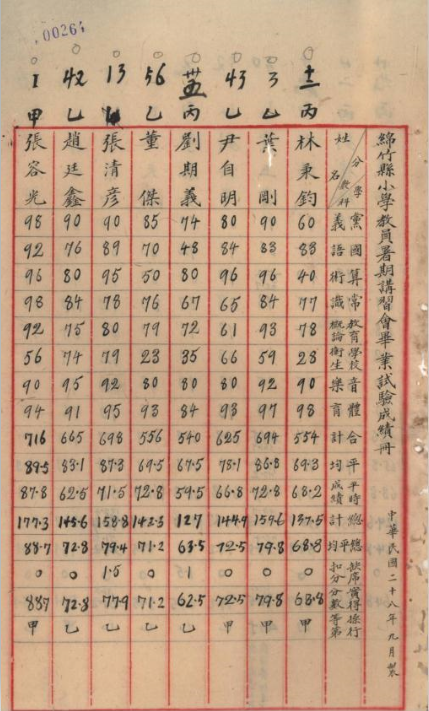 00264
綿竹縣小學教員署期講習會畢業試驗成績冊
中華民國二十八年九月製
分數 學科 姓名 黨義 國語 算術 常識 教育概論 學校衛生 音樂 體育 合計 平均 平時成績 總計 總平均 缺席扣分 實得分數 操行等第
丙 林秉鈞 60 83 40 77 78 28 90 98 554 69.3 68.2 137.5 68.8 0 68.8 甲
3 乙 葉剛 90 83 96 84 93 59 92 97 694 86.8 72.8 159.6 79.8 0 79.8 甲
43 乙 尹自明 80 84 96 65 61 66 80 93 625 78.1 66.8 144.9 72.5 0 72.5 甲
丙 劉期義 74 48 80 67 72 35 80 84 540 67.5 59.5 127 63.5 1 62.5 乙
56 乙 董傑 85 70 50 76 79 23 80 93 556 69.5 72.8 142.3 71.2 0 71.2 乙
13 張清彦 90 89 95 78 80 79 92 95 698 87.3 71.5 158.8 79.4 1.5 77.9 乙
42 乙 趙廷鑫 90 76 80 84 75 74 95 91 665 83.1 62.5 145.6 72.8 0 72.8 乙
1 甲 張容光 98 92 96 98 92 56 90 94 716 89.5 87.8 177.3 88.7 0 887 甲